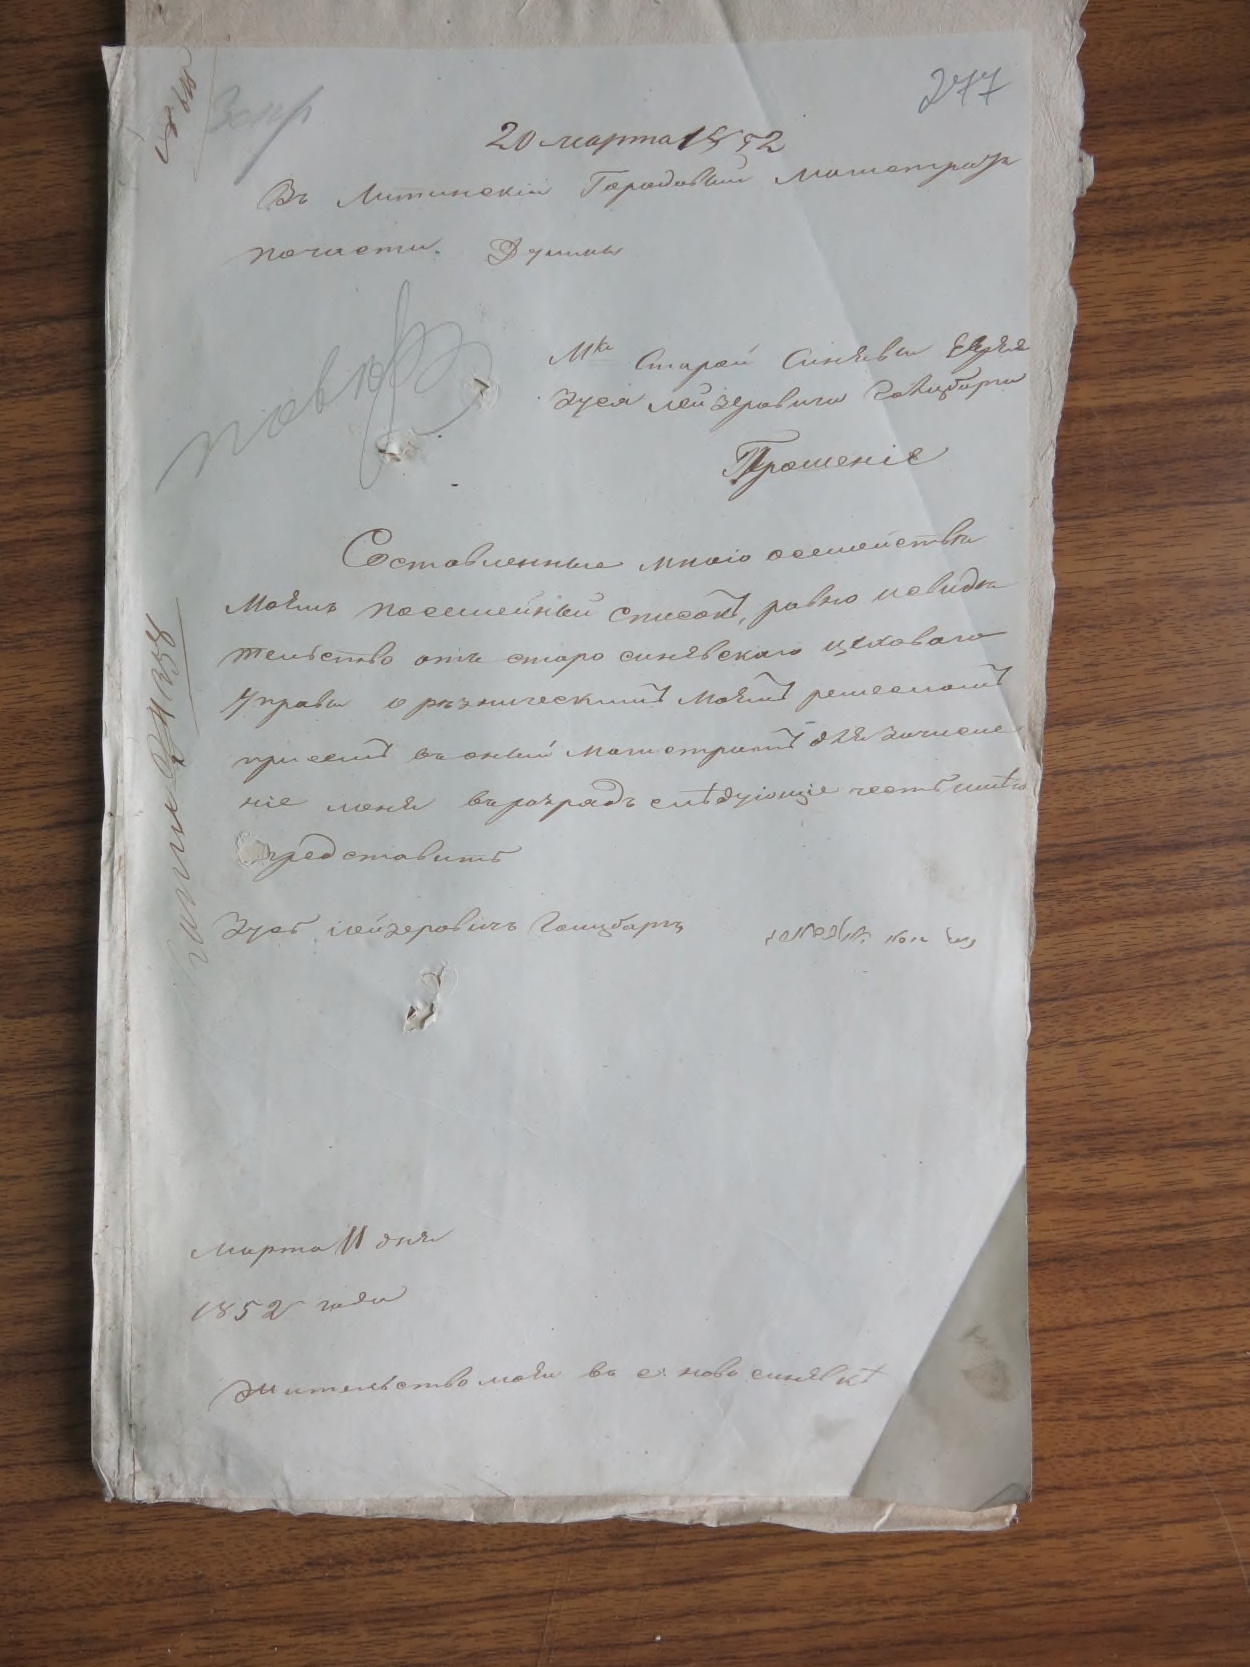 277
20 марта 1852
Въ Литинскій Городовый Магистратъ
почасти Думы
Мка Старой Синявы Еврея
Зуся Лейзеровича Гольцбарга
Прошеніе
Составленные мною осемействи
моѣмъ посемейный списокъ, равно исвидѣ
тельство отъ старо синявскаго цеховаго
Управы о рѣзническимъ моѣмъ ремесломъ
приемъ въ оный магистратъ для зачисле
ніе меня въ розрядъ слѣдующіе честь имѣю
представить
Зусь Лейзеровичъ Голцбаргъ
Марта 11 дня
1852 года
Жительство моя въ с: ново синявкѣ